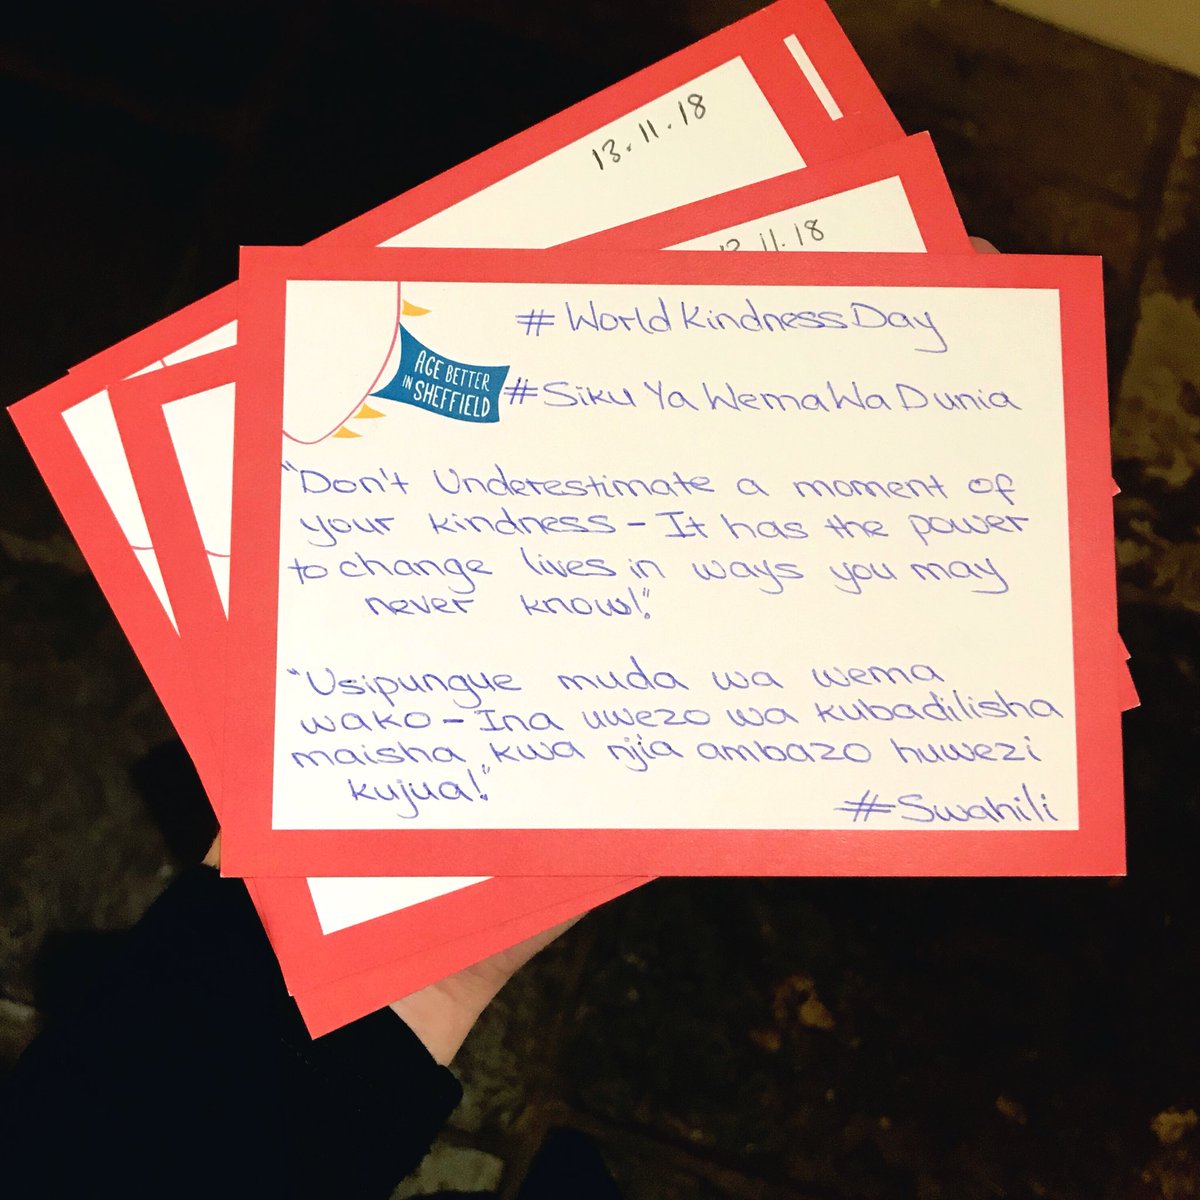 13.11.18
13.11.18
#WorldKindnessDay
AGE BETTER
IN SHEFFIELD
#SikuYaWemaWaDunia
"Don't Underestimate a moment of
your kindness - It has the power
to change lives in ways you may
never know!"
"Usipungue muda wa wema
wako - Ina uwezo wa kubadilisha
maisha kwa njia ambazo huwezi
kujua!"
#Swahili